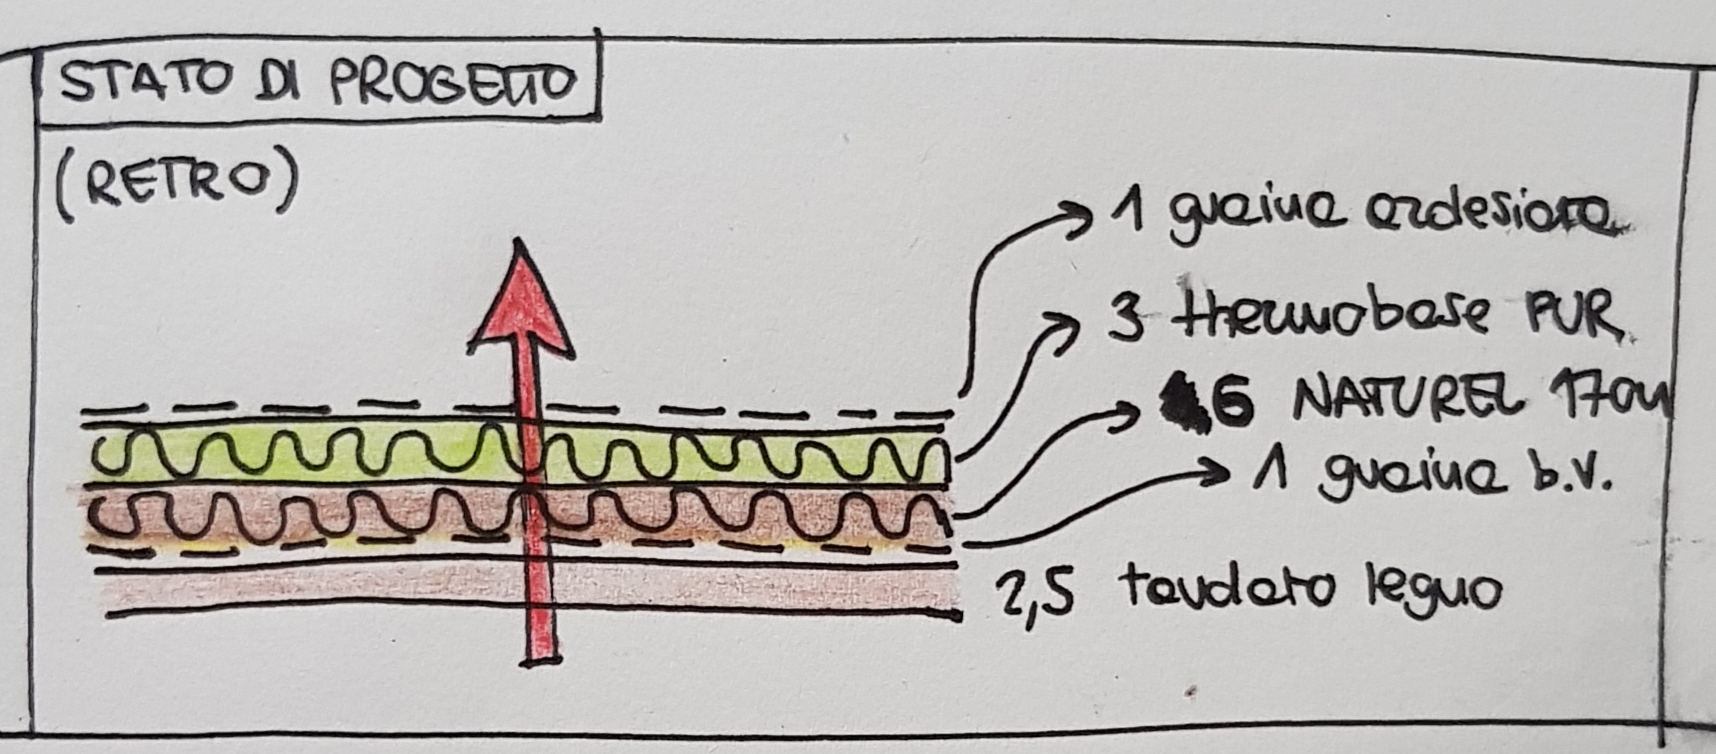 STATO DI PROGETTO
(RETRO)
1 guaina ardesiata
3 thermobase PUR
6 NATUREL 170
1 guaina b.v.
2,5 tavolato legno